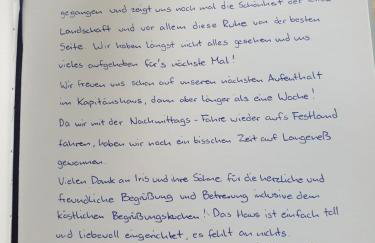 gegangen und zeigt uns noch mal die Schönheit der
Landschaft und vor allem diese Ruhe von der besten
Seite. Wir haben längst nicht alles gesehen und uns
vieles aufgehoben für's nächste Mal!
Wir freuen uns schon auf unseren nächsten Aufenthalt
im Kapitänshaus, dann aber länger als eine Woche!
Da wir mit der Nachmittags-Fähre wieder auf's Festland
fahren, haben wir noch ein bisschen Zeit auf Langeneß
gewonnen.
Vielen Dank an Iris und ihre Söhne für die herzliche und
freundliche Begrüßung und Betreuung inclusive dem
köstlichen Begrüßungskuchen! Das Haus ist einfach toll
und liebevoll eingerichtet, es fehlt an nichts.